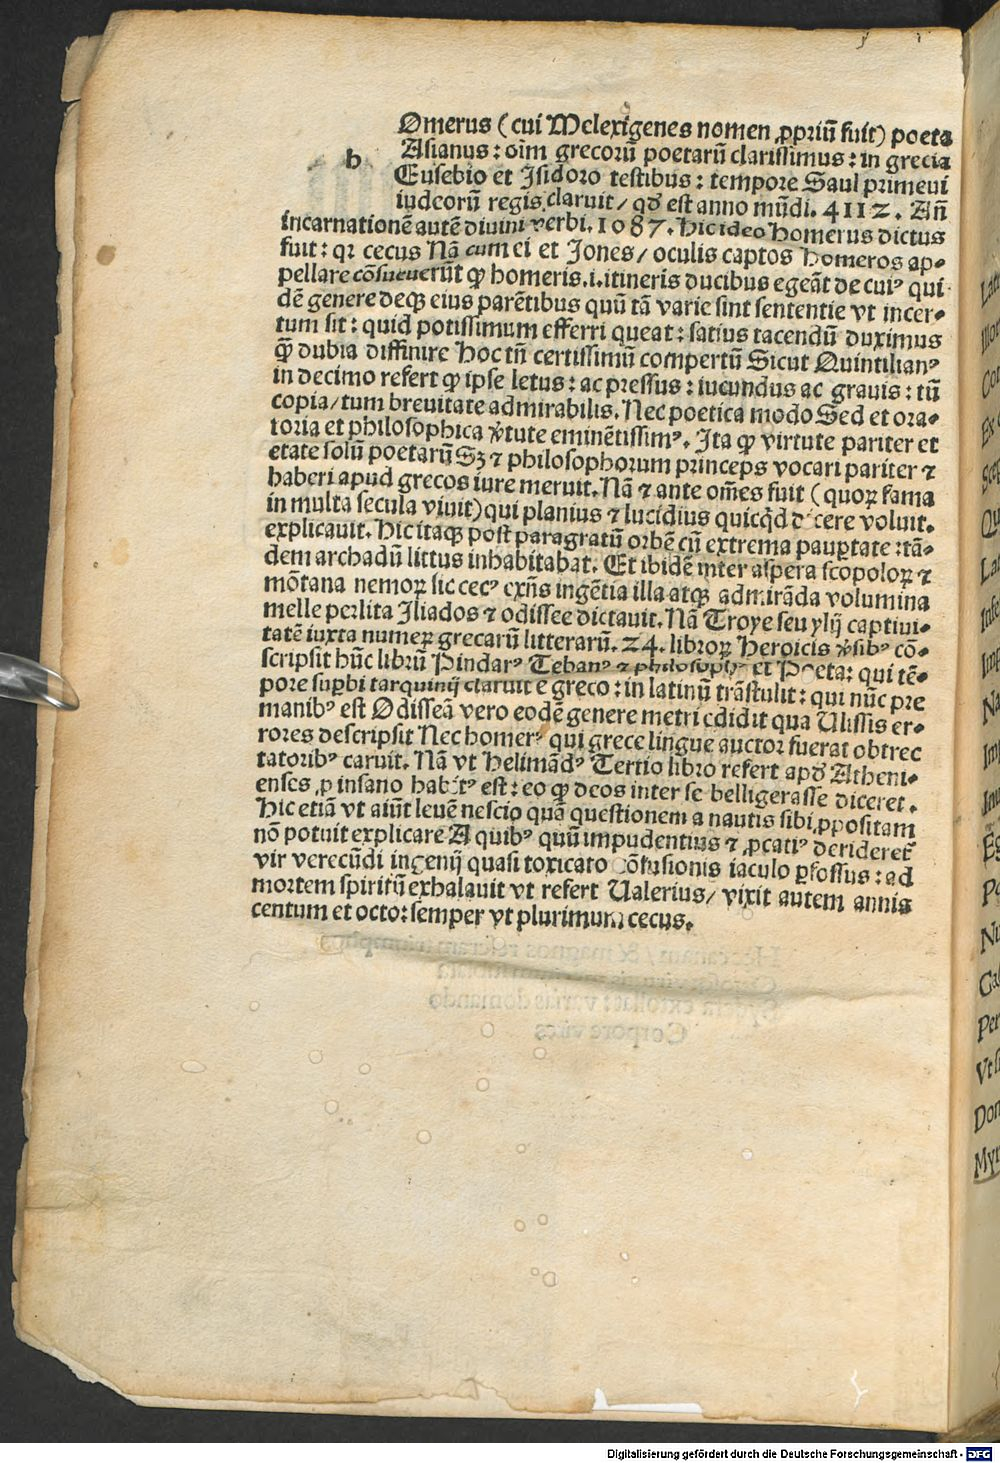 Omerus (cui Melexigenes nomen ꝓpriū fuit) poeta
h Asianus: oīm grecorū poetarū clarissimus: in grecia
Eusebio et Isidoro testibus: tempore Saul primeui
iudeorū regis claruit/ qđ est anno mūdi. 4112. Añ
incarnationē autē diuini verbi. 1087. hic ideo Homerus dictus
fuit: qꝛ cecus Nā cum ei et Jones/ oculis captos homeros ap-
pellare cōsueuerūt ꝙ homeris .i. itineris ducibus egeāt de cuiꝰ qui
dē genere deqꝫ eius parētibus quū tā varie sint sententie vt incer-
tum sit: quid potissimum efferri queat: satius tacendū duximus
ꝙ̄ dubia diffinire Hoc tñ certissimū compertū Sicut Quintilianꝰ
in decimo refert ꝙ ipse letus: ac pressus: iucundus ac grauis: tū
copia/ tum breuitate admirabilis. Nec poetica modo Sed et ora-
toria et philosophica v̄tute eminētissimꝰ. Ita ꝙ virtute pariter et
etate solū poetarū Sꝫ ⁊ philosophorum princeps vocari pariter ⁊
haberi apud grecos iure meruit. Nā ⁊ ante om̄es fuit (quoꝝ fama
in multa secula viuit) qui planius ⁊ lucidius quicq̄d dicere voluit.
explicauit. Hic itaqꝫ post paragratū orbē cū extrema paupertate: tā-
dem archadū littus inhabitabat. Et ibidē inter aspera scopoloꝝ ⁊
mōtana nemoꝝ sic cecꝰ exñs ingētia illa atqꝫ admirāda volumina
melle perlita Iliados ⁊ odissee dictauit. Nā Troye seu ylij captiui-
tatē iuxta numeꝝ grecarū litterarū. 24. libroꝝ Heroicis v̄sibꝰ cō-
scripsit hūc librū Pindarꝰ Tebanꝰ ⁊ philosophꝰ et Poeta: qui tē-
pore suꝑbi tarquinij claruit e greco: in latinū trāstulit: qui nūc pre
manibꝰ est Odisseā vero eodē genere metri edidit qua Ulissis er-
rores descripsit Nec homerꝰ qui grece lingue auctor fuerat obtrec
tatoribꝰ caruit. Nā vt Helimādꝰ Tertio libro refert apđ Atheni-
enses ꝓ insano habitꝰ est: eo ꝙ deos inter se belligerasse diceret.
Hic etiā vt aiūt leuē nescio quā questionem a nautis sibi ꝓpositam
nō potuit explicare A quibꝰ quū impudentius ⁊ ꝓcatiꝰ derideret̄
vir verecūdi ingenij quasi toxicato cōfusionis iaculo ꝑfossus: ad
mortem spiritū exhalauit vt refert Ualerius/ vixit autem annis
centum et octo: semper vt plurimum cecus.
Cor
Ex
Qu
Inse
Na
Im
Per
Vt
Dom
Myr
Digitalisierung gefördert durch die Deutsche Forschungsgemeinschaft - DFG